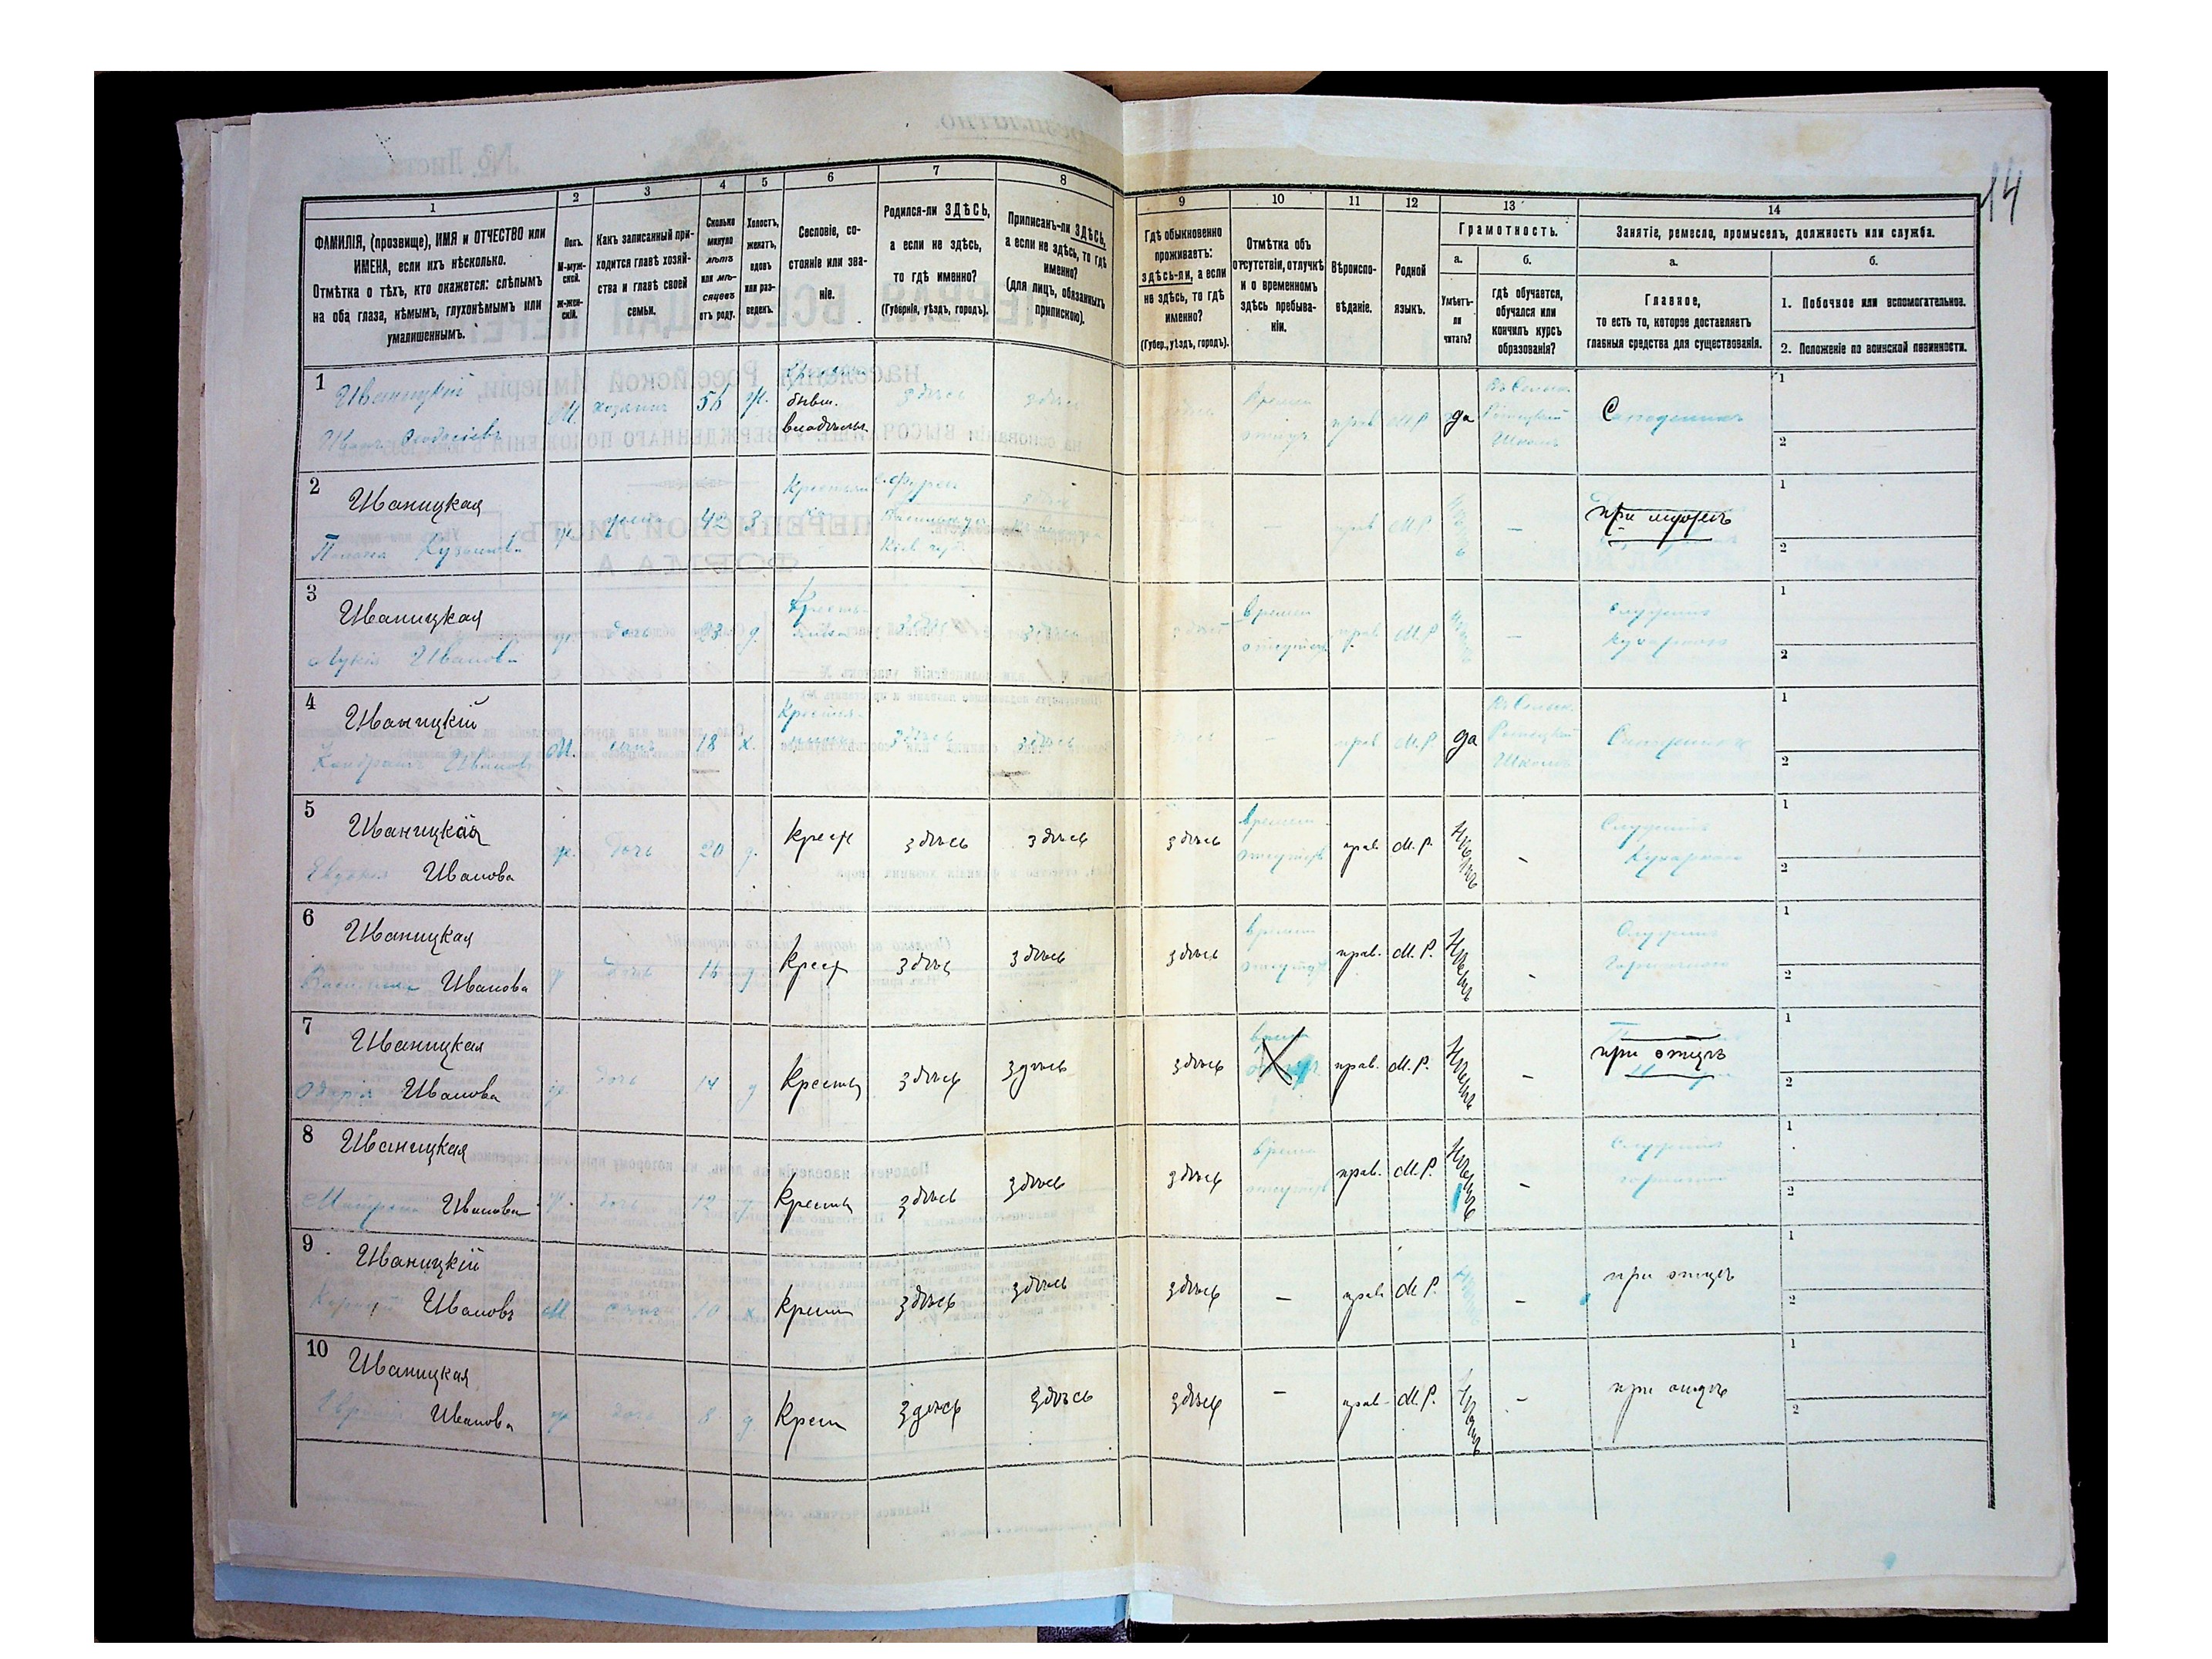 14
1 2 3 4 5 6 7 8 9 10 11 12 13 14
ФАМИЛІЯ, (прозвище), ИМЯ и ОТЧЕСТВО или
ИМЕНА, если ихъ нѣсколько.
Отмѣтка о тѣхъ, кто окажется: слѣпымъ
на оба глаза, нѣмымъ, глухонѣмымъ или
умалишеннымъ.
Полъ.
М-муж-
ской.
ж-жен-
скій.
Какъ записанный при-
ходится главѣ хозяй-
ства и главѣ своей
семьи.
Сколько
минуло
лѣтъ
или мѣ-
сяцевъ
отъ роду.
Холостъ,
женатъ,
вдовъ
или раз-
веденъ.
Сословіе, со-
стояніе или зва-
ніе.
Родился-ли ЗДѢСЬ,
а если не здѣсь,
то гдѣ именно?
(Губернія, уѣздъ, городъ).
Приписанъ-ли ЗДѢСЬ,
а если не здѣсь, то гдѣ
именно?
(для лицъ, обязанныхъ
припискою).
Гдѣ обыкновенно
проживаетъ:
здѣсь-ли, а если
не здѣсь, то гдѣ
именно?
(Губер., уѣздъ, городъ).
Отмѣтка объ
отсутствіи, отлучкѣ
и о временномъ
здѣсь пребыва-
ніи.
Вѣроиспо-
вѣданіе.
Родной
языкъ.
Грамотность.
а.
Умѣетъ-
ли
читать?
б.
гдѣ обучается,
обучался или
кончилъ курсъ
образованія?
Занятіе, ремесло, промыселъ, должность или служба.
а.
Главное,
то есть то, которое доставляетъ
главныя средства для существованія.
б.
1. Побочное или вспомогательное.
2. Положеніе по воинской повинности.
1 Иваницкій
Иванъ Феодосіевъ
М. хозяинъ 56 ж.
бывш.
владѣльч.
здѣсь здѣсь здѣсь
Времен
отсут
прав М.Р. да
Въ Сельск.
Школѣ
1
2
2 Иваницкая
ж. жена 42 З
Крестьян
Кіев. губ.
— прав М.Р. —
при мужѣ
1
2
3 Иваницкая
Лукія Иванов
ж. дочь 23 д.
Кресть-
здѣсь здѣсь здѣсь
Времен
отсутств
прав М.Р. —
Служитъ
кухаркою
1
2
4 Иваницкій
Кондратъ Ивановъ
М. сынъ 18 х.
Крестья-
здѣсь здѣсь
— прав М.Р. да
Въ Сельск.
Школѣ
1
2
5 Иваницкая
Евдокія Иванова
ж. дочь 20 д. Крест здѣсь здѣсь здѣсь
времен
отсутств
прав М.Р. Неграм —
Служитъ
Кухаркою
1
2
6 Иваницкая
Василиса Иванова
дочь 16 д. Крест здѣсь здѣсь здѣсь
времен
отсутств
прав. М.Р. Неграм —
Служитъ
Горничною
1
2
7 Иваницкая
Одарія Иванова
ж. дочь 14 д Крестья здѣсь здѣсь здѣсь
прав. М.Р. Неграм —
при отцѣ
1
2
8 Иваницкая
Матрона Иванова
дочь 12 д. Крестья здѣсь здѣсь здѣсь
времен
отсутств
прав. М.Р. Неграм —
Служитъ
горничною
1
2
9 Иваницкій
Ивановъ
М. сынъ 10 х. Крест здѣсь здѣсь здѣсь — прав М.Р. —
при отцѣ
1
2
10 Иваницкая
Иванова
ж. дочь 8 д Крест здѣсь здѣсь здѣсь — прав М.Р. Неграм —
при отцѣ
1
2